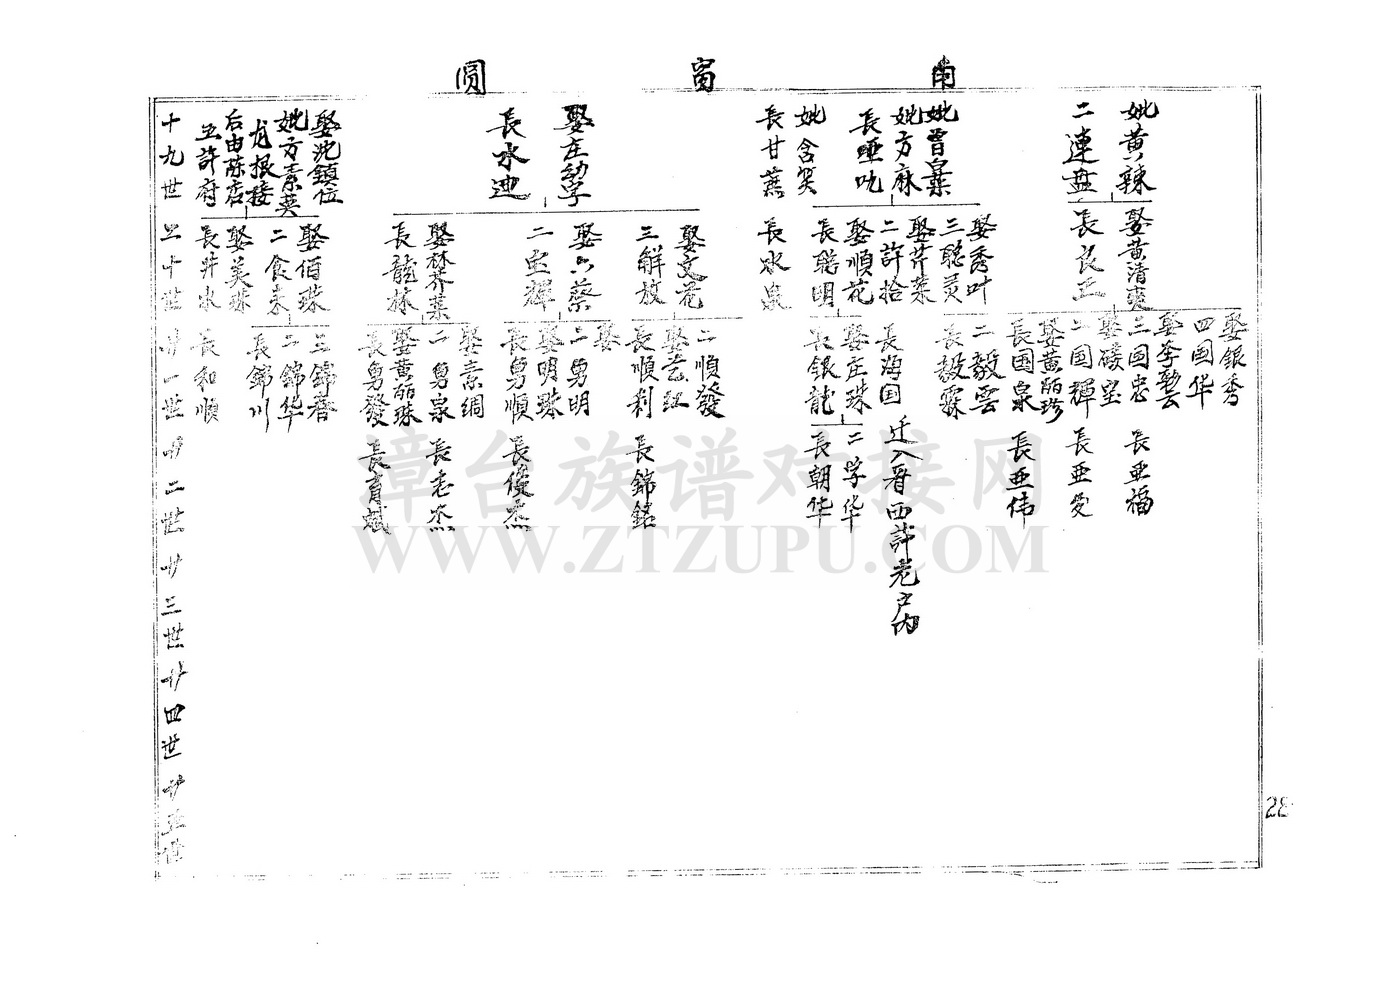 南
窗
圆
妣黄辣
二連盐
妣曾皇葉
妣方麻
長哑吮
妣含笑
長甘蔗
娶庄幼字
長水迎
娶沈鎮位
妣方素英
龙根接
后由陈店
五許府
十九世
娶黄清爽
長良正
娶秀叶
三聪灵
娶芹菜
二許拾
娶順花
長聪明
長水泉
娶文花
三解放
娶六蔡
二忠輝
娶林芥菜
長龍林
娶佰珠
二食来
娶美珠
長井水
二十世
娶銀秀
四国华
娶李馨云
三国忠
娶碰皇
二国輝
娶黄丽珍
長国泉
二毅雲
長毅霖
長海国
迁入晋西許老户内
娶庄珠
長銀龍
二順發
娶艺红
長順利
娶
二勇明
娶明珠
長勇順
娶素绸
二勇泉
娶黄丽珠
長勇發
三錦春
二錦华
長錦川
長和順
廿一世
長亜福
長亜发
長亜伟
二学华
長朝华
長錦銘
長俊杰
長志杰
長育斌
廿二世
廿三世
廿四世
廿五世
28
漳台族谱对接网
WWW.ZTZUPU.COM